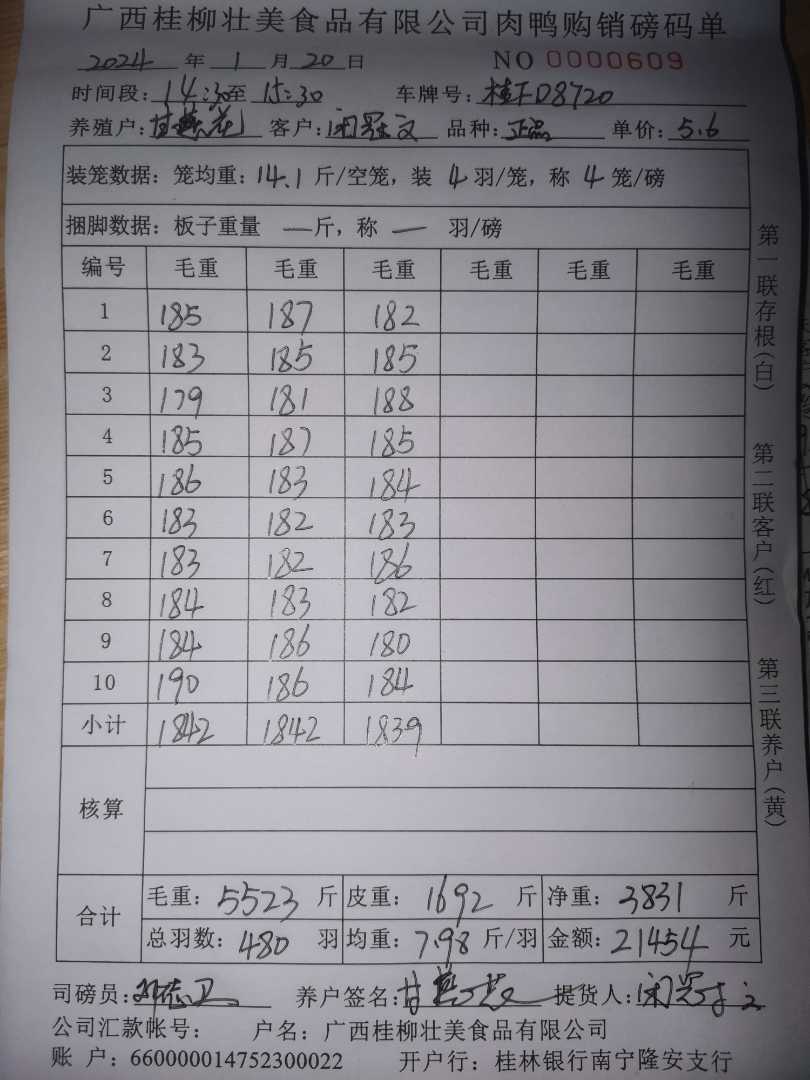 广西桂柳壮美食品有限公司肉鸭购销磅码单
2024 年 1 月 20 日 NO 0000609
时间段: 14:30 至 15:30 车牌号: 桂FD8720
养殖户: 甘燕花 客户: 闭冠文 品种: 正品 单价: 5.6
装笼数据: 笼均重: 14.1 斤/空笼, 装 4 羽/笼, 称 4 笼/磅
捆脚数据: 板子重量 — 斤, 称 — 羽/磅
编号 毛重 毛重 毛重 毛重 毛重 毛重
1 185 187 182
2 183 185 185
3 179 181 188
4 185 187 185
5 186 183 184
6 183 182 183
7 183 182 186
8 184 183 182
9 184 186 180
10 190 186 184
小计 1842 1842 1839
核算
合计 毛重: 5523 斤 皮重: 1692 斤 净重: 3831 斤
总羽数: 480 羽 均重: 7.98 斤/羽 金额: 21454 元
司磅员: 养户签名: 甘燕花 提货人: 闭冠文
公司汇款帐号: 户名: 广西桂柳壮美食品有限公司
账 户: 660000014752300022 开户行: 桂林银行南宁隆安支行
第一联存根(白) 第二联客户(红) 第三联养户(黄)